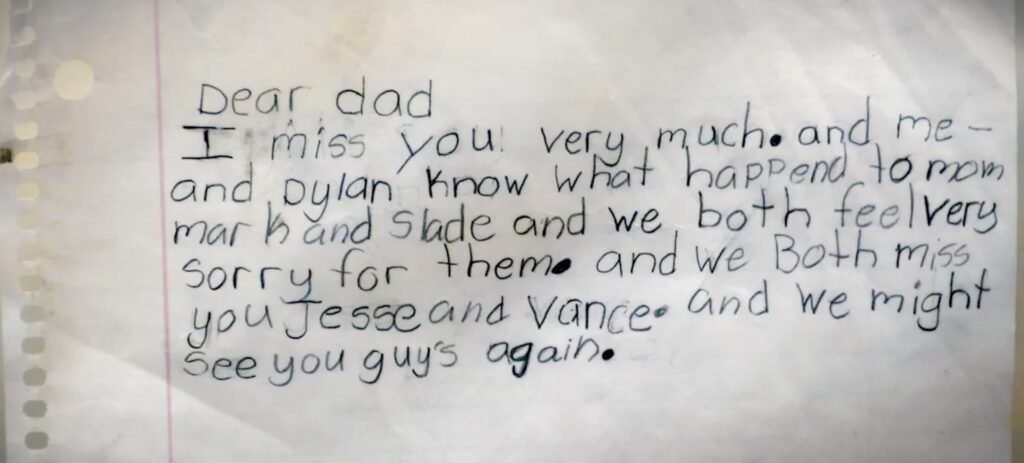 Dear dad
I miss you very much. and me -
and Dylan know what happend to mom
mark and Slade and we both feel very
sorry for them. and we Both miss
you Jesse and Vance. and we might
see you guy's again.